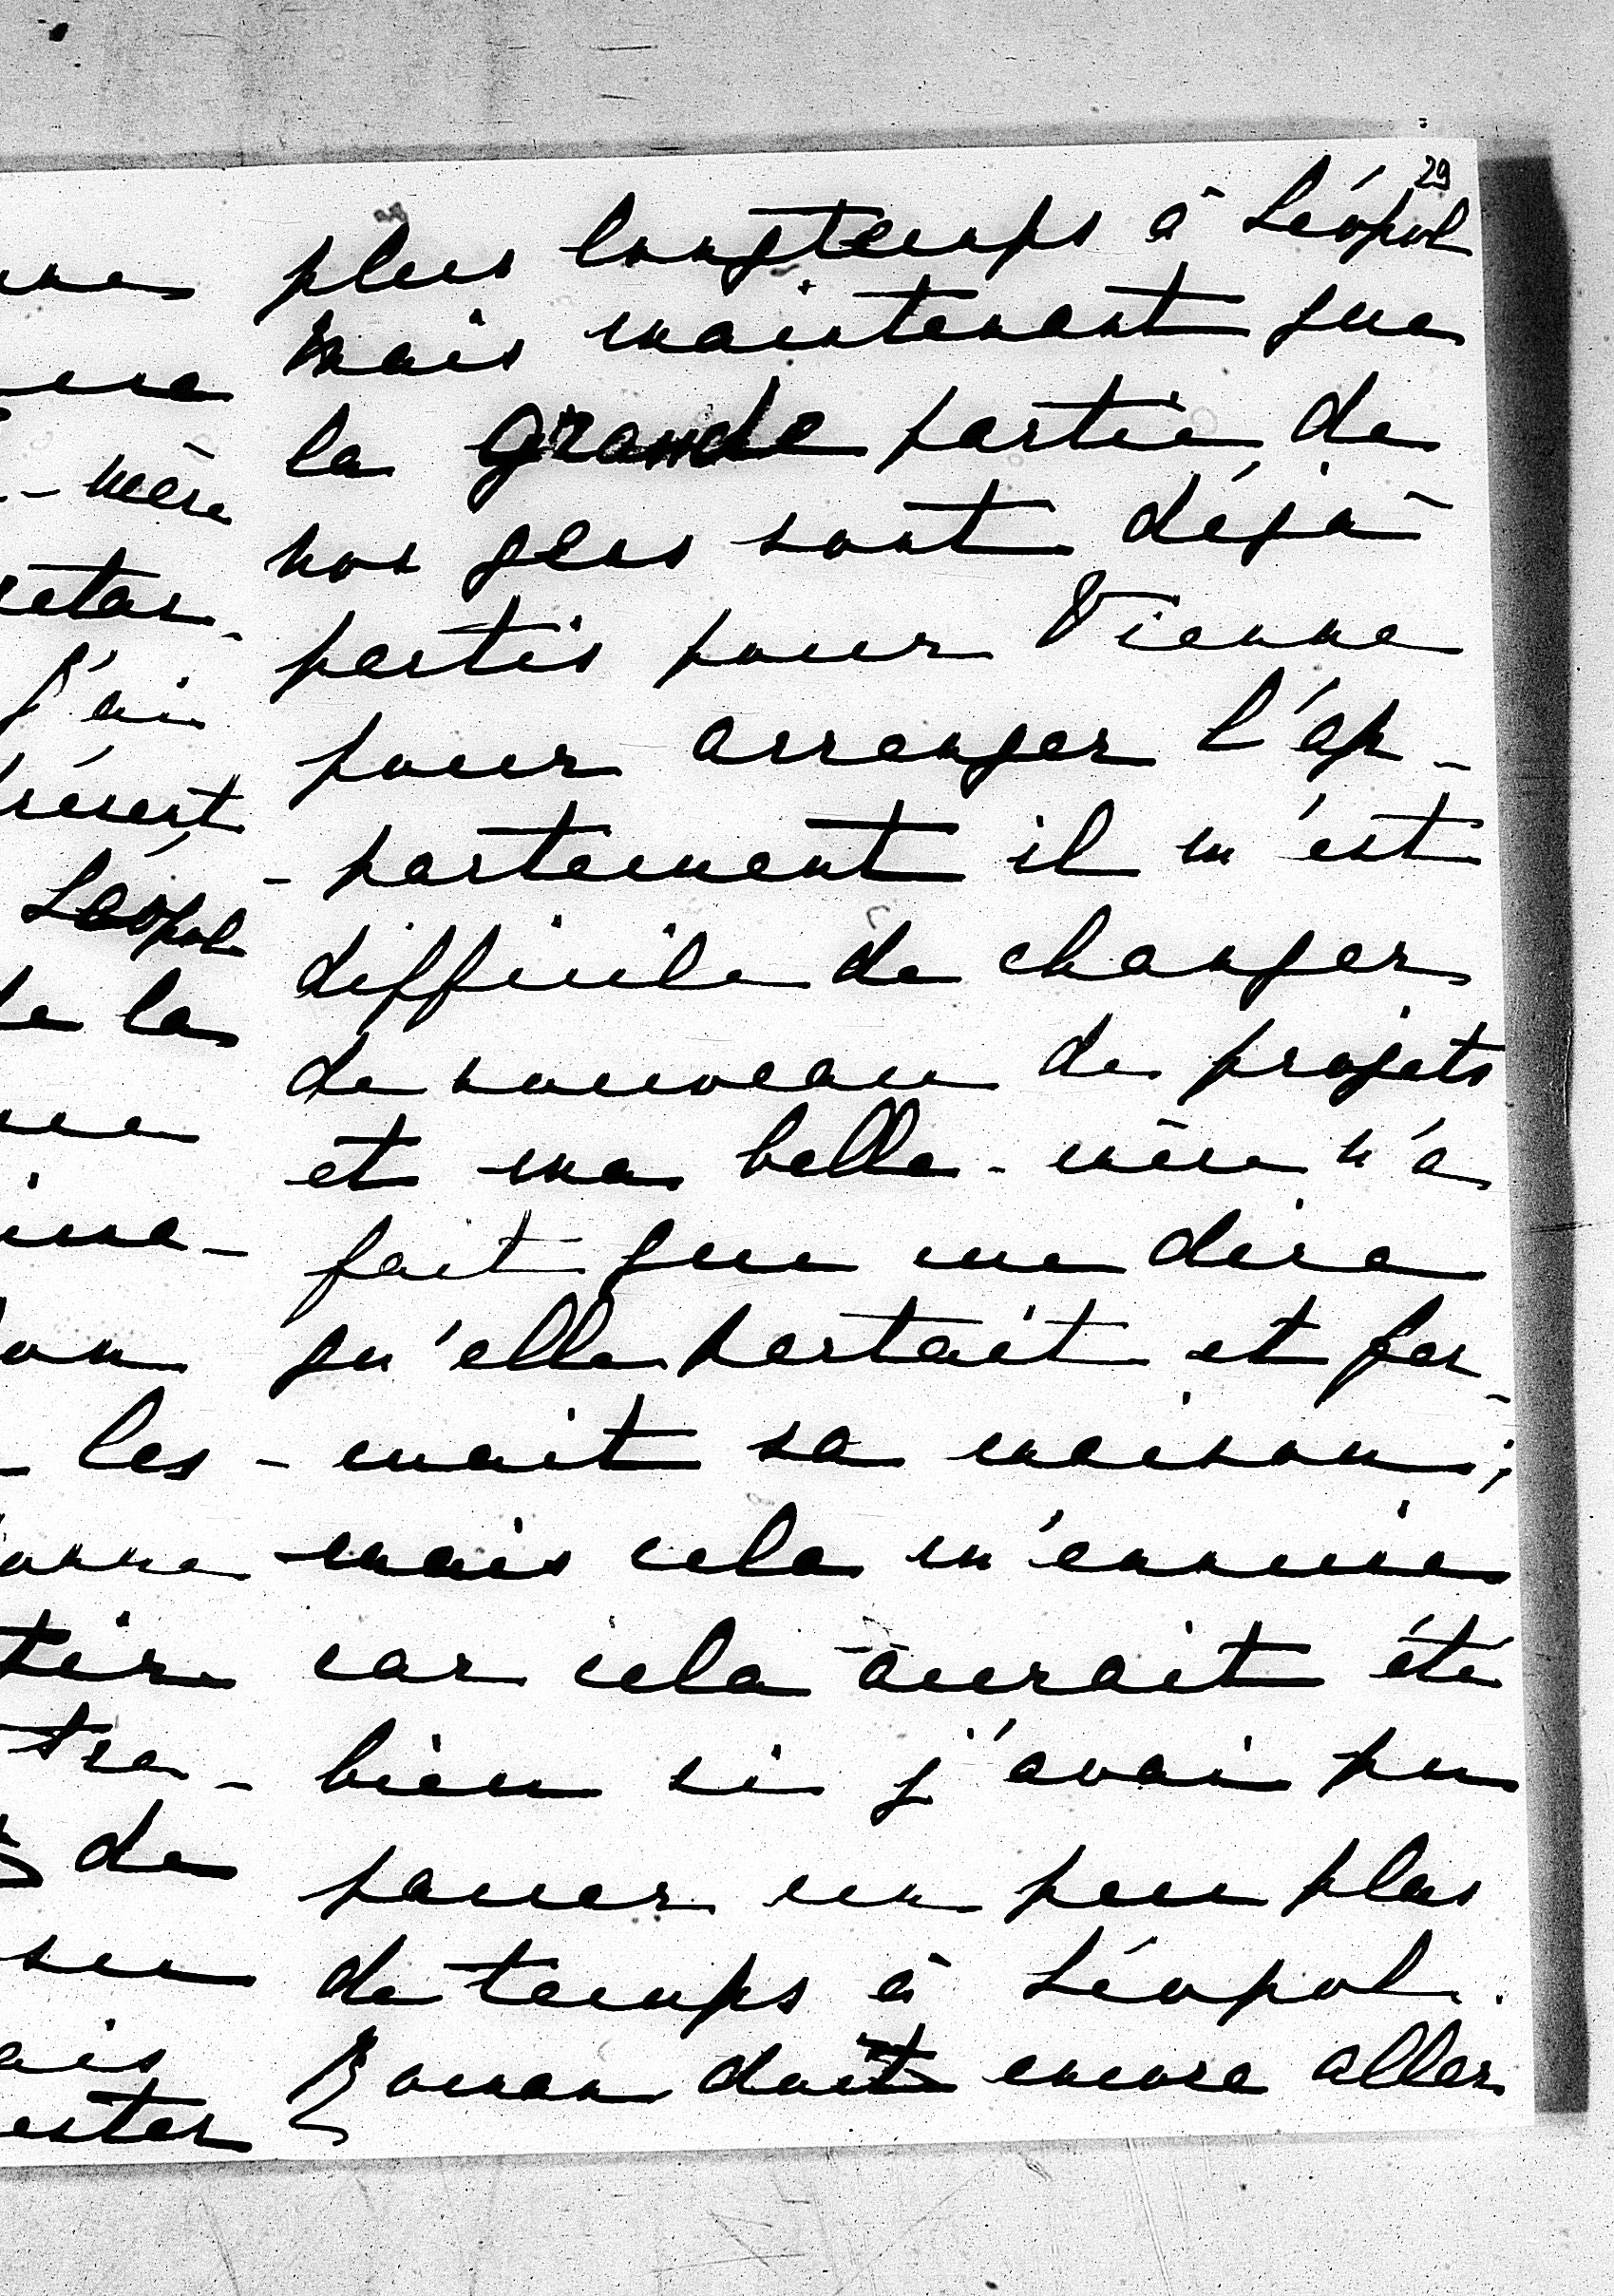 29
plus longtemps à Léopol
mais maintenant que
la grande partie de
nos gens sont déjà
partis pour Vienne
pour arranger l'ap-
-partement il m'est
difficile de changer
de nouveau de projets
et ma belle-mère n'a
fait que me dire
qu'elle partait et fer-
-mait sa maison;
mais cela m'ennuie
car cela aurait été
bien si j'avais pu
passer un peu plus
de temps à Léopol.
Roman doit encore aller
-mère
retar-
j'ai
Léopol
de la
les
de